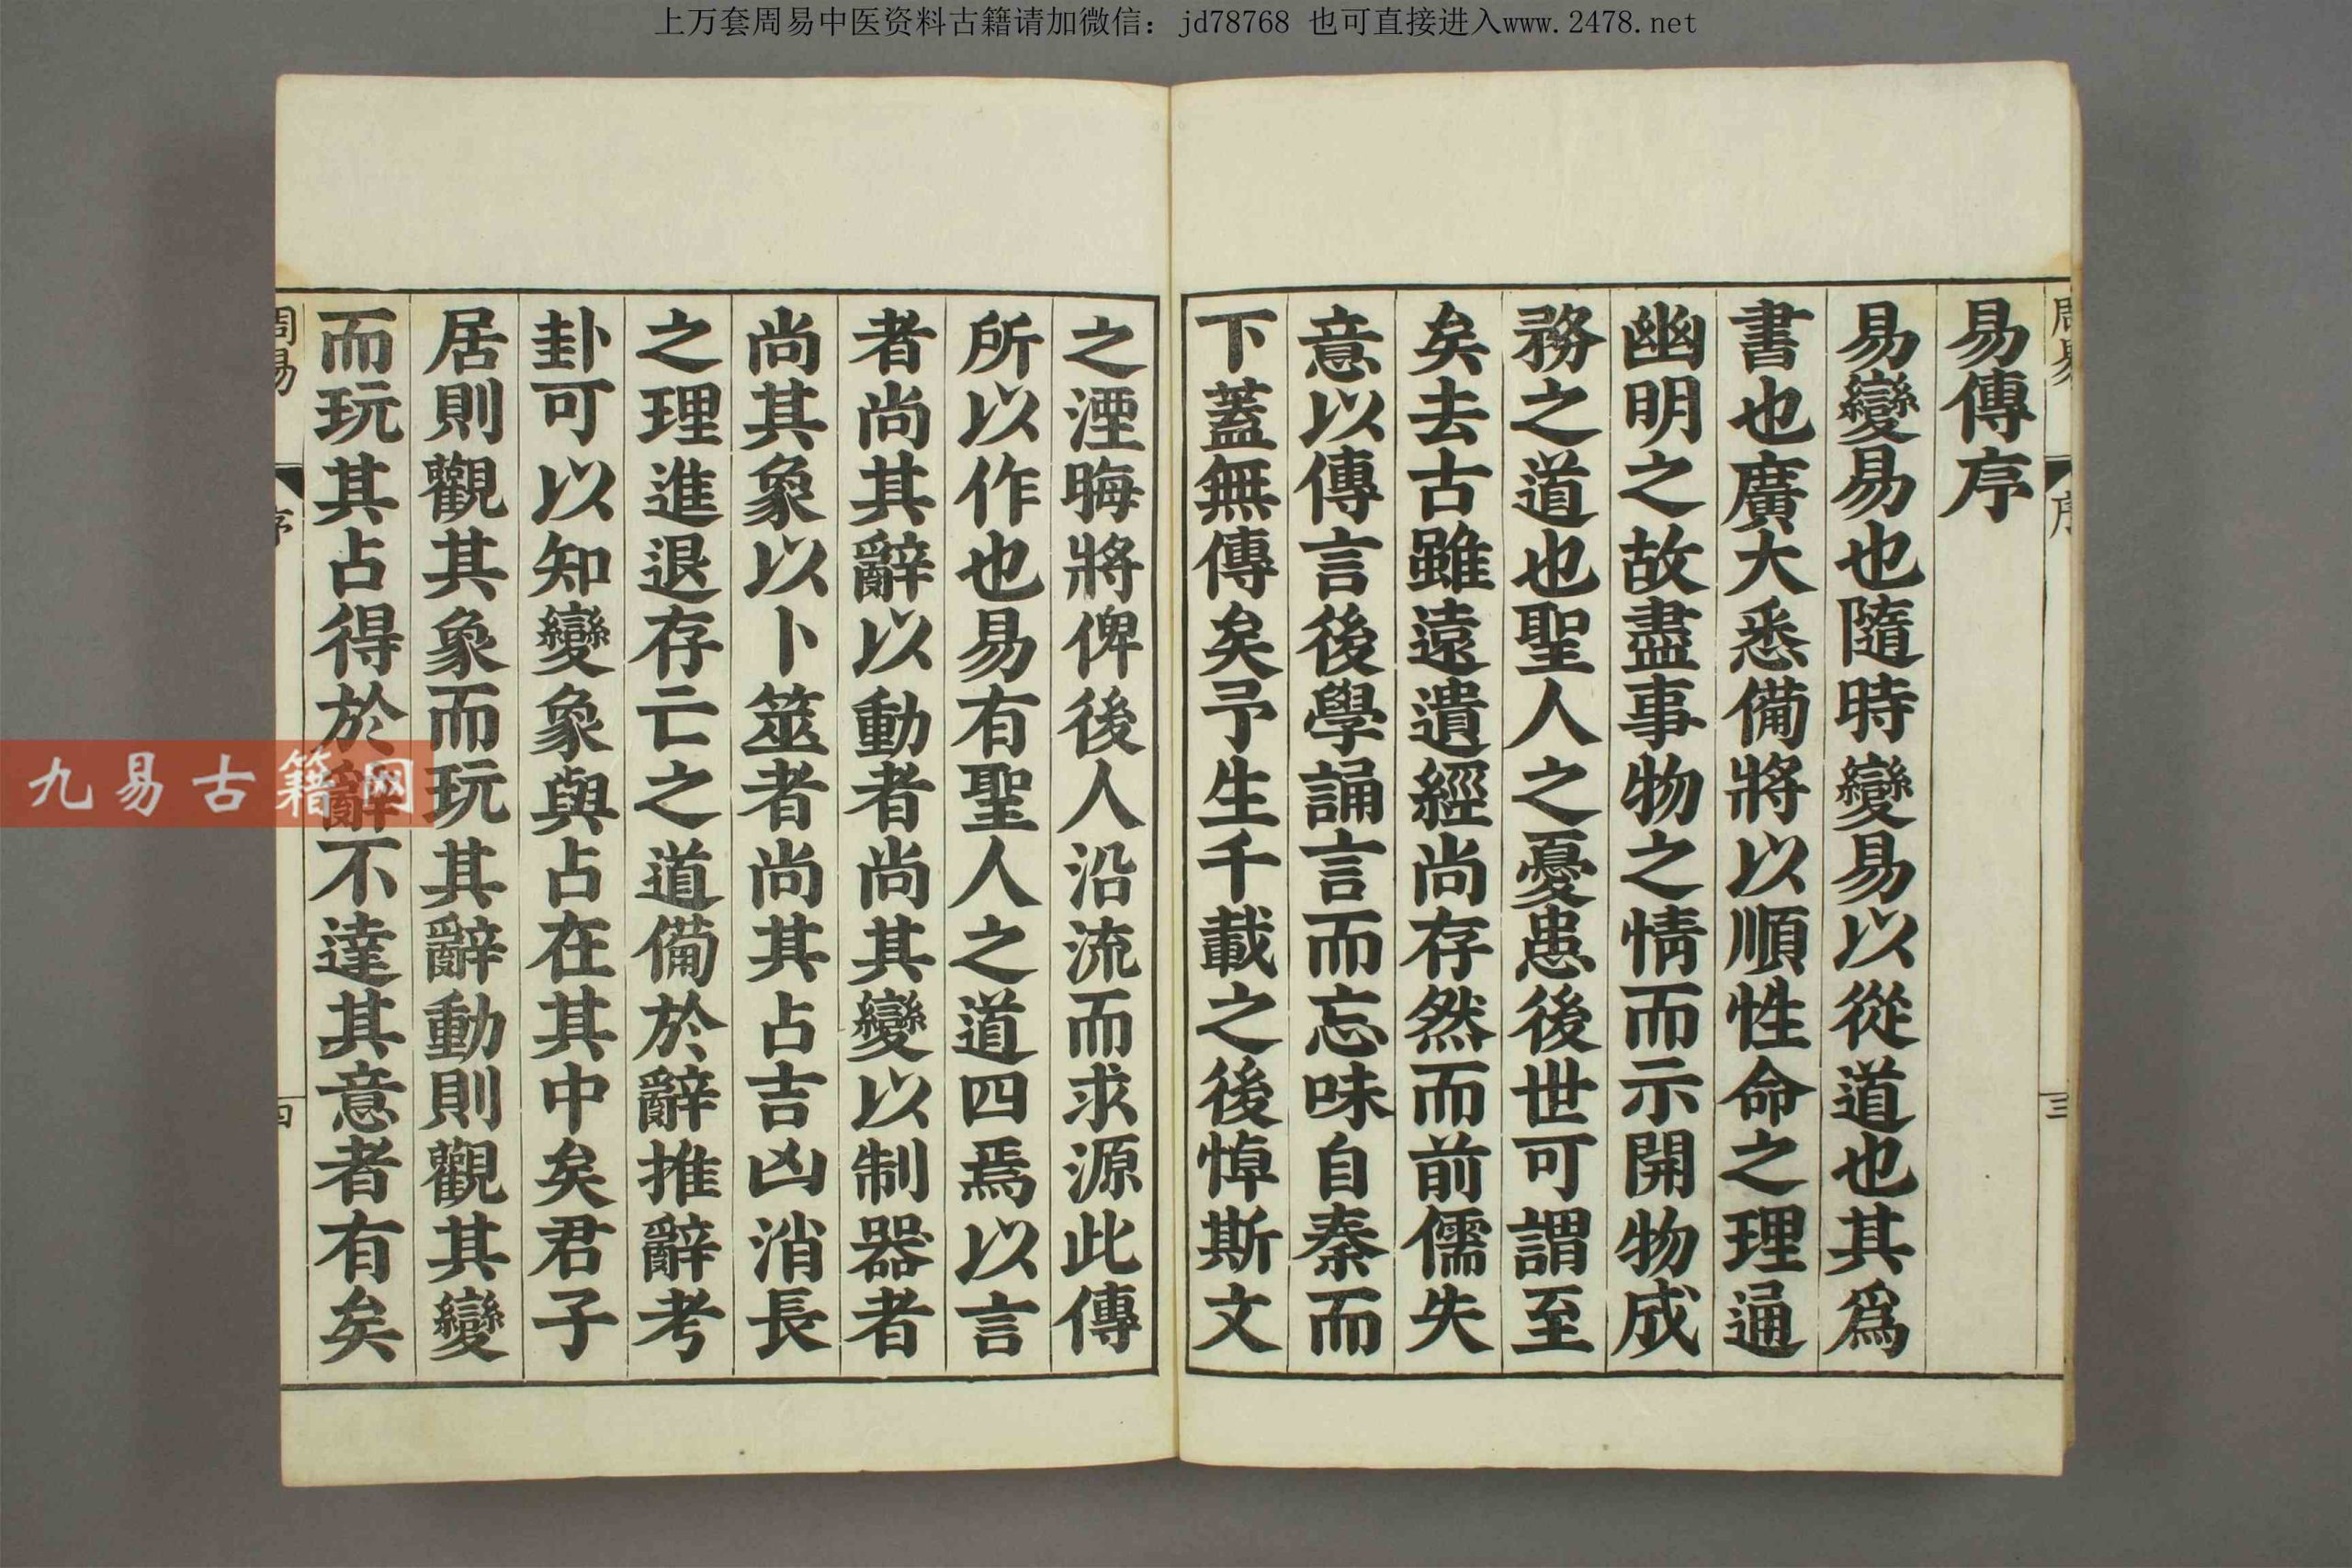 上万套周易中医资料古籍请加微信：jd78768 也可直接进入www.2478.net
周易
序
三
易傳序
易變易也隨時變易以從道也其爲
書也廣大悉備將以順性命之理通
幽明之故盡事物之情而示開物成
務之道也聖人之憂患後世可謂至
矣去古雖遠遺經尚存然而前儒失
意以傳言後學誦言而忘味自秦而
下蓋無傳矣予生千載之後悼斯文
之湮晦將俾後人沿流而求源此傳
所以作也易有聖人之道四焉以言
者尚其辭以動者尚其變以制器者
尚其象以卜筮者尚其占吉凶消長
之理進退存亡之道備於辭推辭考
卦可以知變象與占在其中矣君子
居則觀其象而玩其辭動則觀其變
而玩其占得於辭不達其意者有矣
周易
序
四
九易古籍网